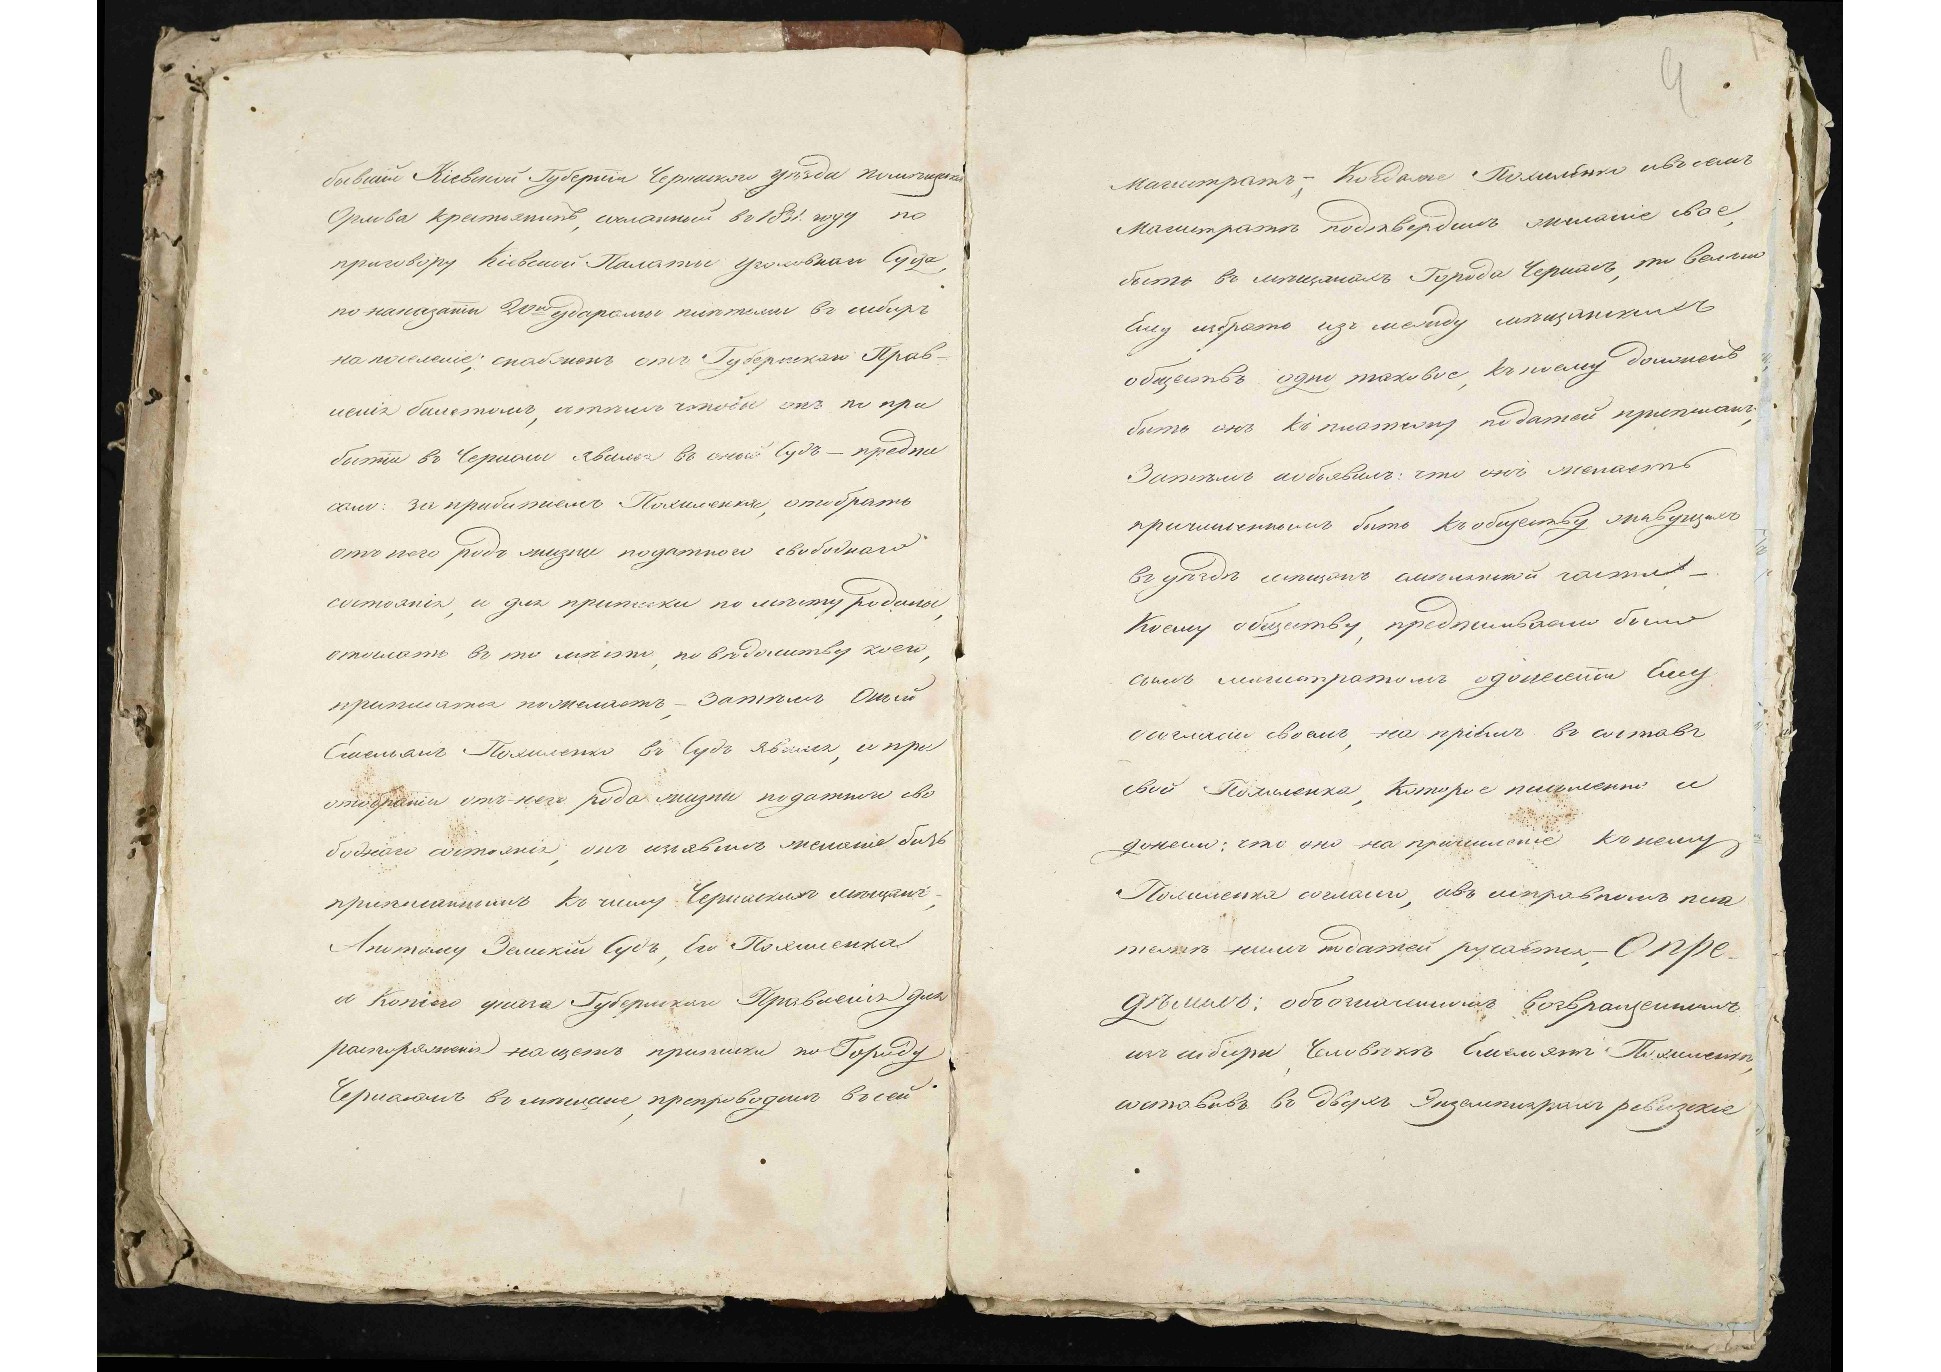 бывшій Кіевской Губерніи Черкаскаго уѣзда помѣщика
Орлова крестьянинъ, сосланный въ 1831. году по
приговору Кіевской Палаты уголовнаго Суда,
по наказаніи 20ю ударами плѣтьми въ сибирь
на поселеніе; снабженъ отъ Губернскаго Прав-
ленія билетомъ, стѣмъ чтобы онъ по при
бытіи въ Черкасы явился въ оной Судъ – предпи
сано: за прибытіемъ Похиленка, отобрать
отъ него родъ жизни податнаго свободнаго
состоянія, и для приписки по мѣсту родины,
отослать въ то мѣсто, по вѣдомству коего,
приписатся пожелаетъ, – Затѣмъ Оный
Емельянъ Похиленко въ Судъ явился, и при
отобраніи отъ него рода жизни податнаго сво
боднаго состоянія, онъ изъявилъ желаніе быть
приписаннымъ къ числу Черкаскихъ мѣщанъ, –
Апотому Земскій Судъ, Его Похиленка
и Копіею указа Губернскаго Правленія для
распоряженія на щетъ приписки по Городу
Черкасамъ въ мѣщане, препроводилъ въ сей
9
Магистратъ, – Когдаже Похиленко ивъ семъ
Магистратѣ подтвердилъ желаніе свое,
быть въ мѣщанахъ Города Черкасъ, то велѣно
Ему избрать изъ между мѣщанскихъ
обществъ одно таковое, къ коему долженъ
быть онъ къ платежу податей приписанъ,
Затѣмъ иобъявилъ: что онъ желаетъ
причисленнымъ быть къ обществу живущихъ
въ уѣздѣ мѣщанъ смѣлянской части –
Коему обществу, предписывано было
симъ магистратомъ одонесеніи Ему
осогласіи своемъ, на пріемъ въ составъ
свой Похиленка, Которое письменно и
донесло: что оно на причисленіе къ нему
Похиленка согласно, ивъ исправномъ пла
тежѣ нимъ податей ручается, – Опре-
дѣлилъ: обозначеннымъ возвращеннымъ
изъ сибири, Человѣкѣ Емельянѣ Похиленкѣ,
составивъ въ двухъ Экземплярахъ ревизскіе